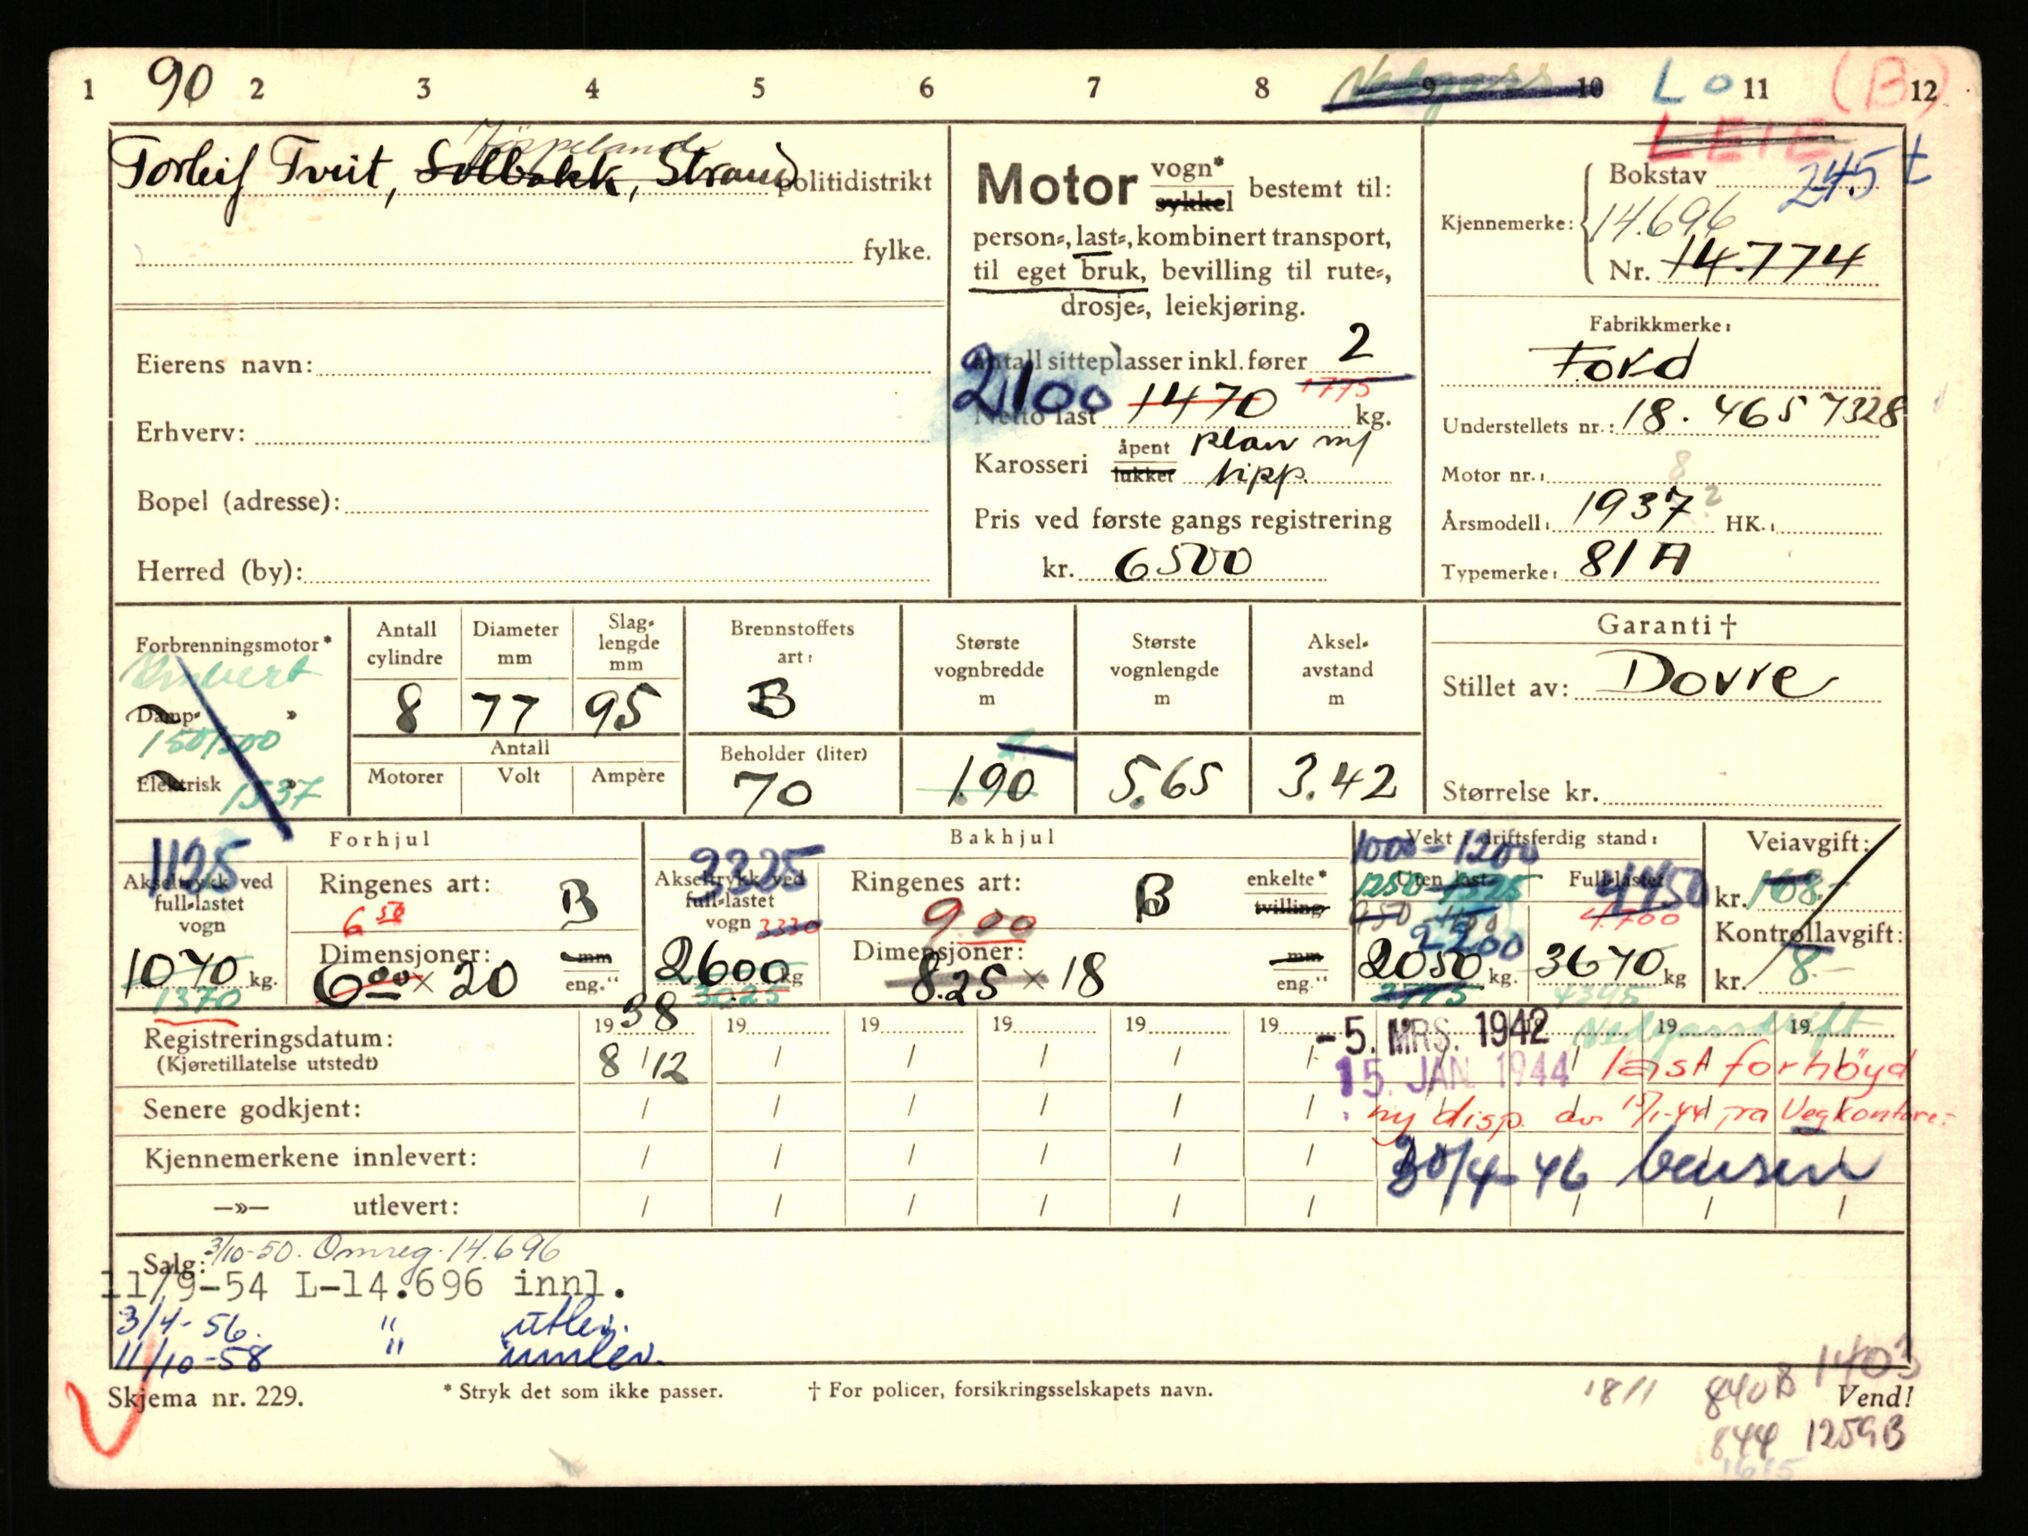 90
1 2 3 4 5 6 7 8 9 10 11 12
Lo (B)
LEIE
Jørpeland
Torleif Tveit, Solbakk, Strand politidistrikt
fylke.
Eierens navn:
Erhverv:
Bopel (adresse):
Herred (by):
Motor vogn* sykkel bestemt til:
person-, last-, kombinert transport,
til eget bruk, bevilling til rute-,
drosje-, leiekjøring.
Antall sitteplasser inkl. fører 2
2100
Netto last 1470 1775 kg.
Karosseri åpent lukket plan m/
tipp.
Pris ved første gangs registrering
kr. 6500
Bokstav 245 t
Kjennemerke: 14.696
Nr. 14.774
Fabrikkmerke:
Ford
Understellets nr.: 18. 4657328
Motor nr.: 8
Årsmodell: 1937 ? HK.:
Typemerke: 81A
Forbrenningsmotor*
Damp- »
150/500
Elektrisk »
1537
Antall cylindre 8
Diameter mm 77
Slaglengde mm 95
Antall
Motorer Volt Ampère
Brennstoffets art: B
Beholder (liter) 70
Største vognbredde m 1.90
Største vognlengde m 5.65
Akselavstand m 3.42
Garanti †
Stillet av: Dovre
Størrelse kr.
Forhjul
1125
Akseltrykk ved full-lastet vogn
1070 kg.
1370
Ringenes art: B
6 50
Dimensjoner: mm eng."
6 00 x 20
Bakhjul
3325
Akseltrykk ved full-lastet vogn 3330
2600 kg
3025
Ringenes art: B enkelte* tvilling
9 00
Dimensjoner: mm eng."
8.25 x 18
Vekt i driftsferdig stand:
1000 - 1200
Uten last Full-lastet
4450
4.700
2200
2050 kg. 3670 kg
4395
Veiavgift:
kr. 168.-
Kontrollavgift:
kr. 8.-
Registreringsdatum: 1938 19 19 19 19 19 19 19
(Kjøretillatelse utstedt) 8/12
-5. MRS. 1942 Vedgassdrift
15. JAN. 1944 last forhöyd
Senere godkjent:
ny disp. av 15/1-44 fra Vegkontoret
Kjennemerkene innlevert:
30/4-46 bensin
—»— utlevert:
Salg: 3/10-50. Omreg. 14.696
11/9-54 L-14.696 innl.
3/4-56. " utlev.
11/10-58 " innlev.
Skjema nr. 229.
* Stryk det som ikke passer.
† For policer, forsikringsselskapets navn.
1811 840B 1403
Vend!
844 1259B